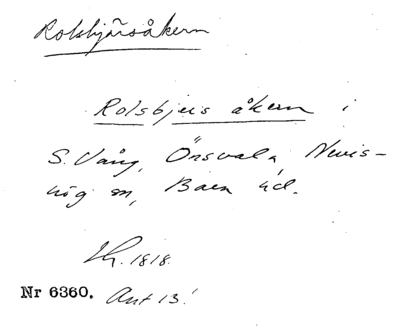 Rolsbjärsåkern
Rolsbjeis åkern i
S. Vång, Önsvala, Nevis-
hög sn, Bara hd.
1818.
Nr 6360. Ant 13!